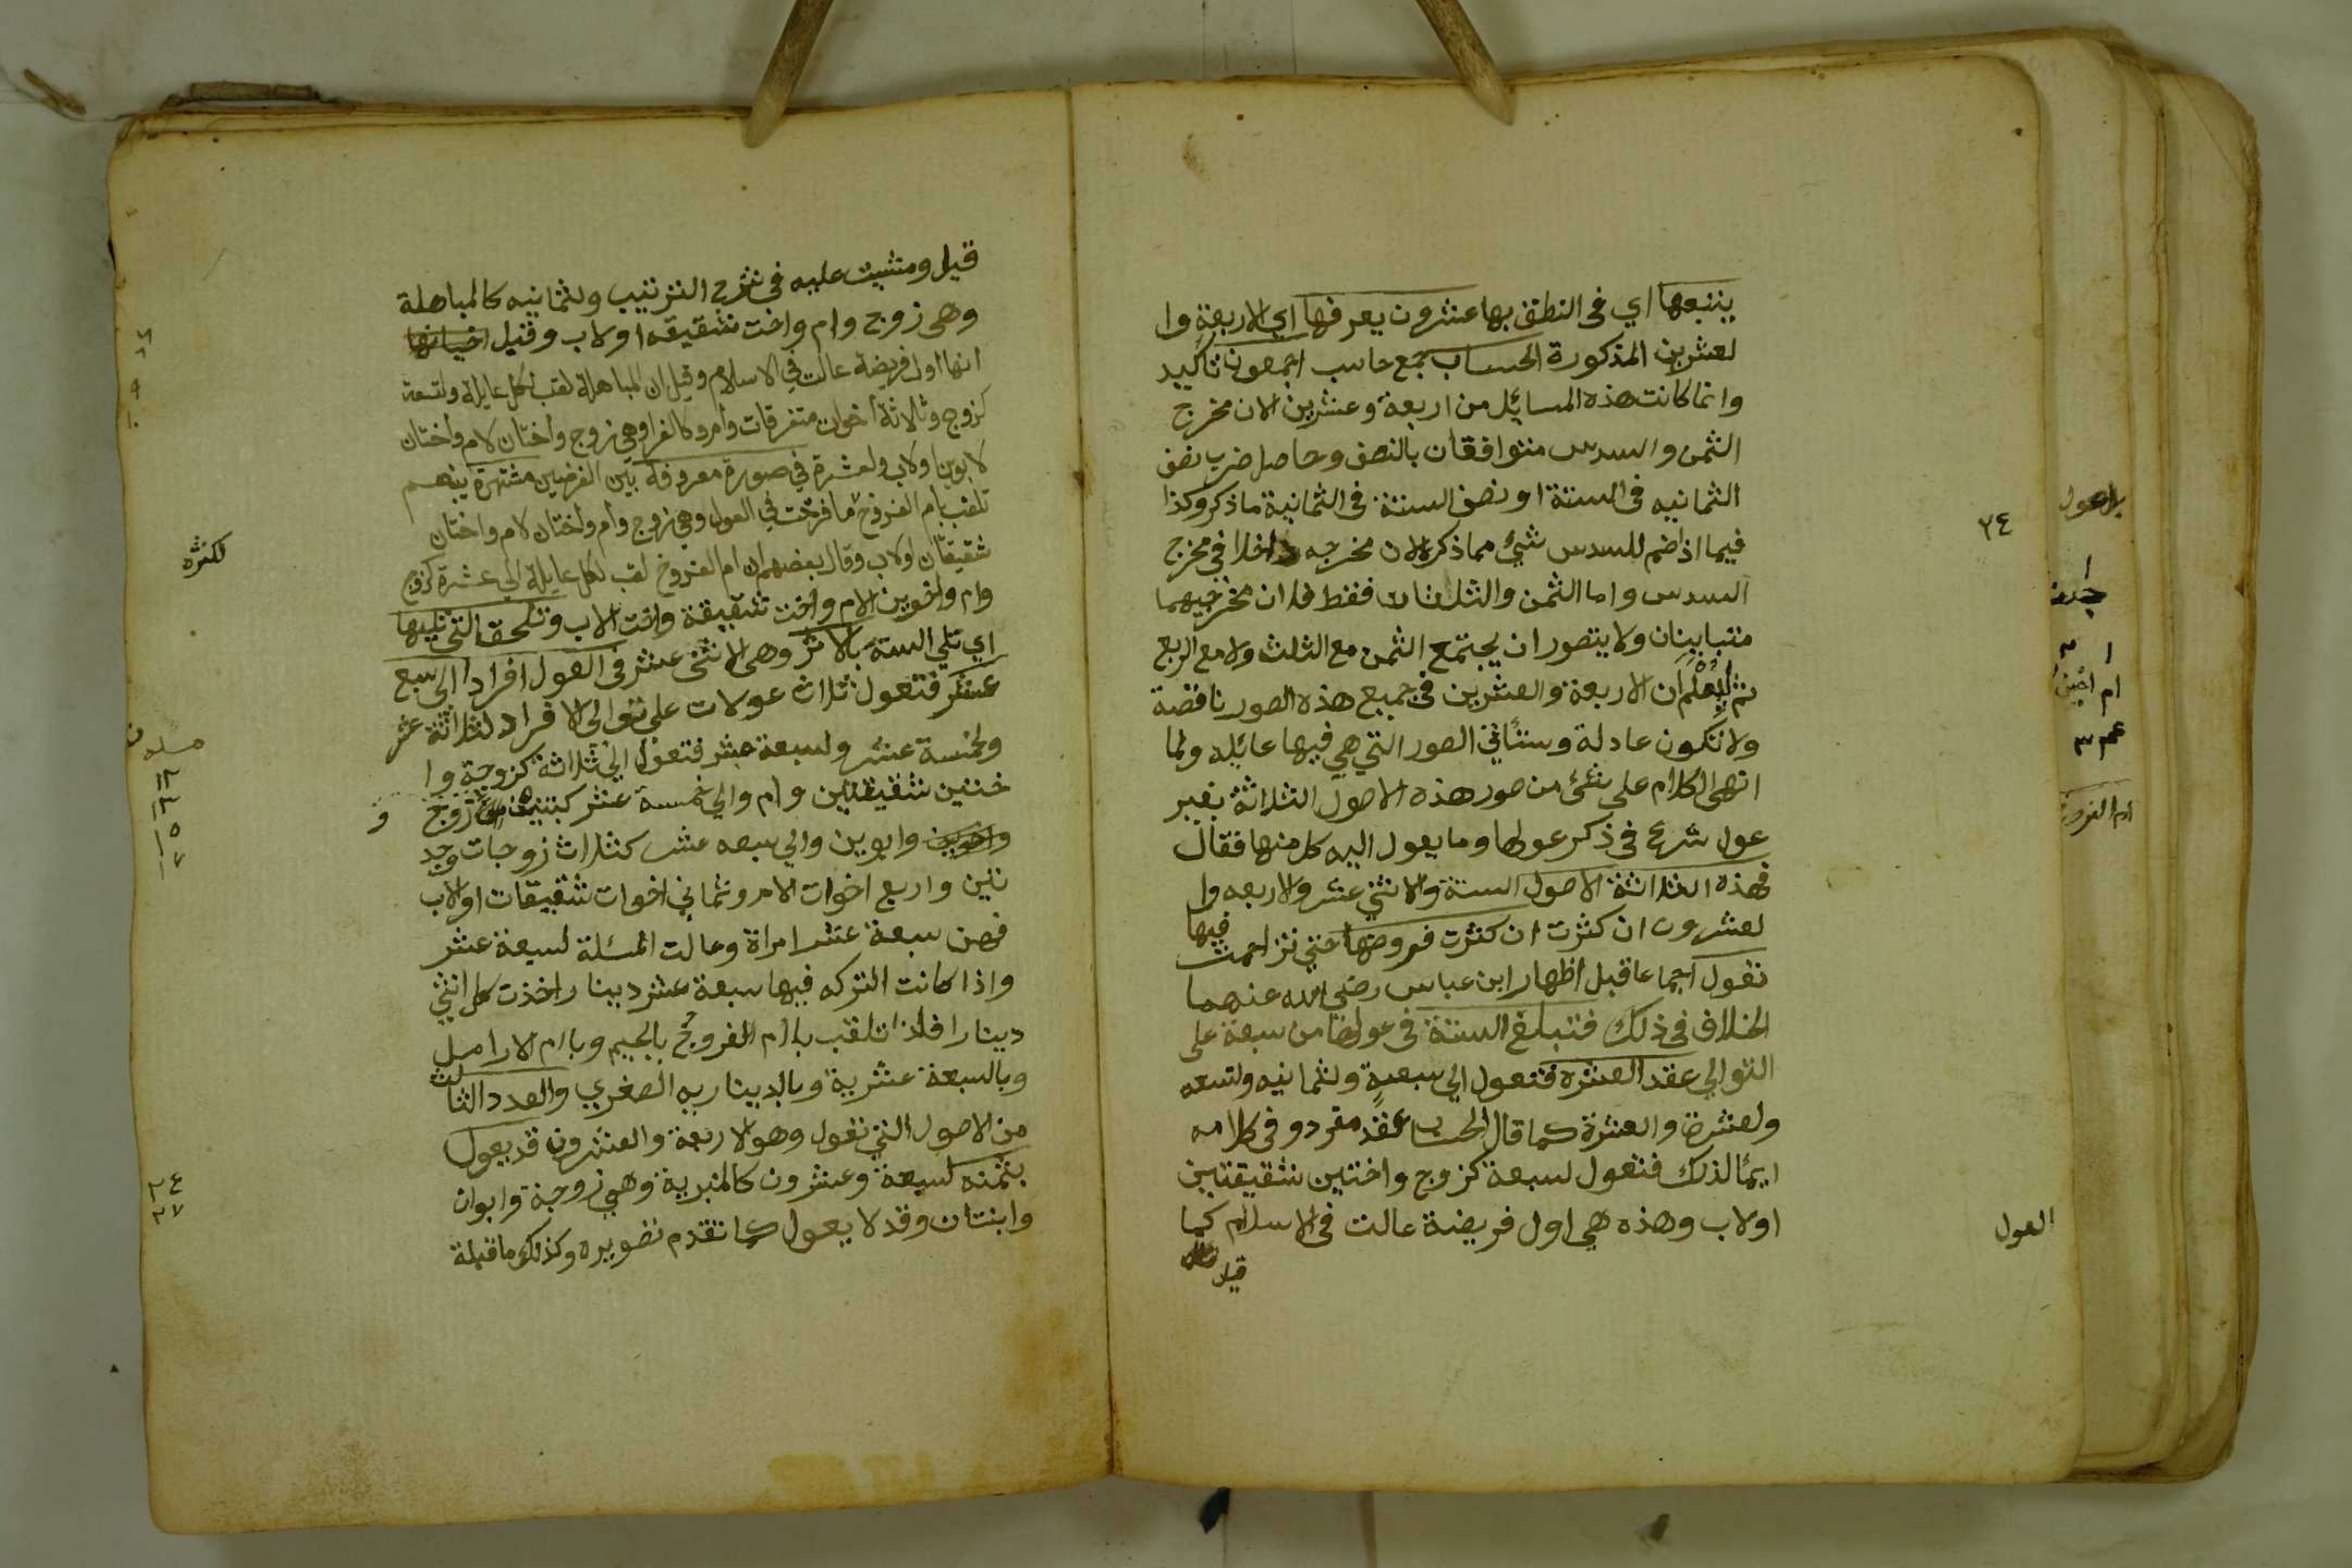 يتبعها اي في النطق بها عشرون يعرفها اي الاربعة وا
لعشرين المذكورة الحساب جمع حاسب اجمعون تاكيد
وانما كانت هذه المسائل من اربعة وعشرين لان مخرج
الثمن والسدس متوافقان بالنصف وحاصل ضرب نصف
الثمانيه في الستة او نصف الستة في الثمانية ما ذكر وكذا
فيما اذا ضم للسدس شيء مما ذكر لان مخرجه داخلا في مخرج
السدس واما الثمن والثلثان فقط فلان مخرجيهما
متباينان ولا يتصور ان يجتمع الثمن مع الثلث ولا مع الربع
ثم ليعلم ان الاربعة والعشرين في جميع هذه الصور ناقصة
ولا تكون عادلة وستأتي الصور التي هي فيها عائلة ولما
انهى الكلام على شئ من صور هذه الاصول الثلاثة بغير
عول شرع في ذكر عولها وما يعول اليه كل منها فقال
فهذه الثلاثة الاصول الستة والاثني عشر والاربعه وا
لعشرون ان كثرت ان كثرت فروضها حتى تزاحمت فيها
تعول اجماعا قبل اظهار ابن عباس رضي الله عنهما
الخلاف في ذلك فتبلغ الستة في عولها من سبعة على
التوالي عقد العشره فتعول الي سبعة ولثمانيه ولتسعه
ولعشرة والعشرة كما قال الحساب عقد مفرد وفي كلامه
ايمأ لذلك فتعول لسبعة كزوج واختين شقيقتين
او لاب وهذه هي اول فريضة عالت في الاسلام كما
قيل
٢٤
العول
قيل ومشيت عليه في شرح الترتيب ولثمانيه كالمباهلة
وهي زوج وام واخت شقيقه او لاب وقيل
انها اول فريضة عالت في الاسلام وقيل ان المباهلة لقب لكل عايلة ولتسعة
كزوج وثلاثة أخوات متفرقات وأم وكالغرا وهي زوج واختان لام واختان
لابوين او لاب ولعشرة في صورة معروفة بين الفرضيين مشتهرة بينهم
تلقب بأم الفروخ ما فرخت في العول وهي زوج وأم وأختان لام واختان
شقيقتان او لاب وقال بعضهم ان ام الفروخ لقب لكل عايلة الي عشرة كزوج
وام واخوين لام واخت شقيقة واخت لاب وتلحق التي تليها
اي تلي الستة بالاثر وهي الاثني عشر في العول افرادا الى سبع
عشر فتعول ثلاث عولات على توالي الافراد لثلاثة عشر
ولخمسة عشر ولسبعة عشر فتعول الي ثلاثة كزوجة وا
ختين شقيقتين وام والي خمسة عشر كبنتين وزوج
وابوين والي سبعه عشر كثلاث زوجات وجد
تين واربع اخوات لام وثماني اخوات شقيقات او لاب
فهن سبعة عشر امراة وعالت المسئلة لسبعة عشر
واذا كانت التركه فيها سبعة عشر دينار اخذت كل انثي
دينارا فلذا تلقب بأم الفروج بالجيم وبام الارامل
وبالسبعة عشرية وبالديناريه الصغري والعدد الثالث
من الاصول التي تعول وهو الاربعة والعشرون قد يعول
بثمنه لسبعة وعشرون كالمنبرية وهي زوجة وابوان
وابنتان وقد لا يعول كما تقدم تصويره وكذلك ما قبله
لكثره
١٢
١٣
١٥
١٧
٢٤
٢٧